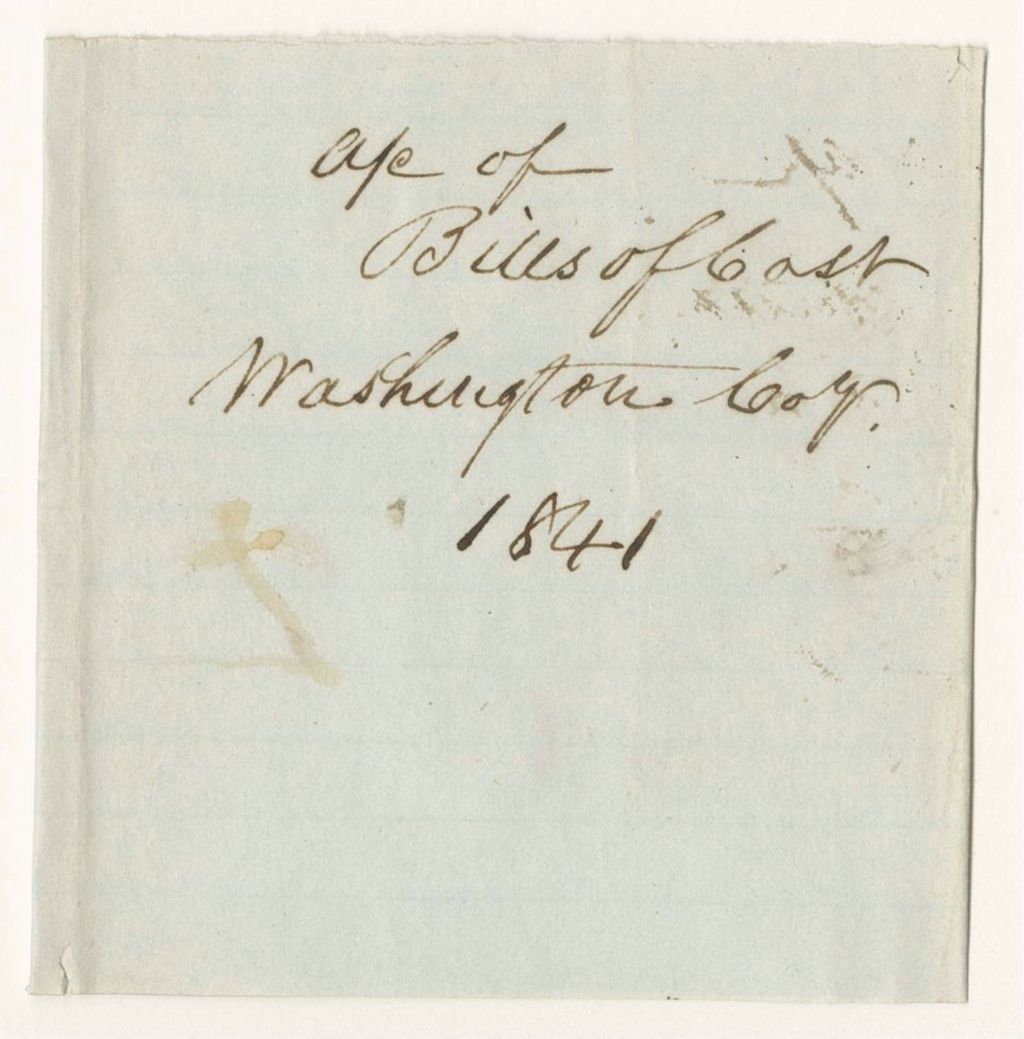 a/c of
Bills of Cost
Washington Coy.
1841